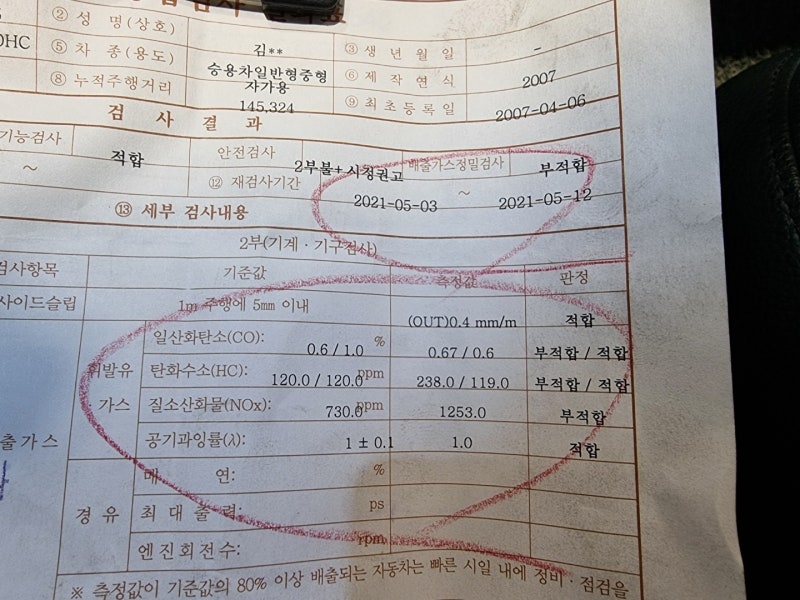 ② 성 명(상호) 김** ③ 생년월일 -
OHC ⑤ 차 종(용도) 승용차일반형중형 자가용 ⑥ 제작연식 2007
⑧ 누적주행거리 145,324 ⑨ 최초등록일 2007-04-06
검 사 결 과
기능검사 적합 안전검사 2부불+시정권고 배출가스정밀검사 부적합
~ ⑫ 재검사기간 2021-05-03 ~ 2021-05-12
⑬ 세부 검사내용
2부(기계·기구검사)
검사항목 기준값 측정값 판정
사이드슬립 1m 주행에 5mm 이내 (OUT)0.4 mm/m 적합
일산화탄소(CO): 0.6 / 1.0 % 0.67 / 0.6 부적합 / 적합
휘발유 탄화수소(HC): 120.0 / 120.0 ppm 238.0 / 119.0 부적합 / 적합
가스 질소산화물(NOx): 730.0 ppm 1253.0 부적합
출가스 공기과잉률(λ): 1 ± 0.1 1.0 적합
매 연: %
경유 최대출력: ps
엔진회전수: rpm
※ 측정값이 기준값의 80% 이상 배출되는 자동차는 빠른 시일 내에 정비·점검을